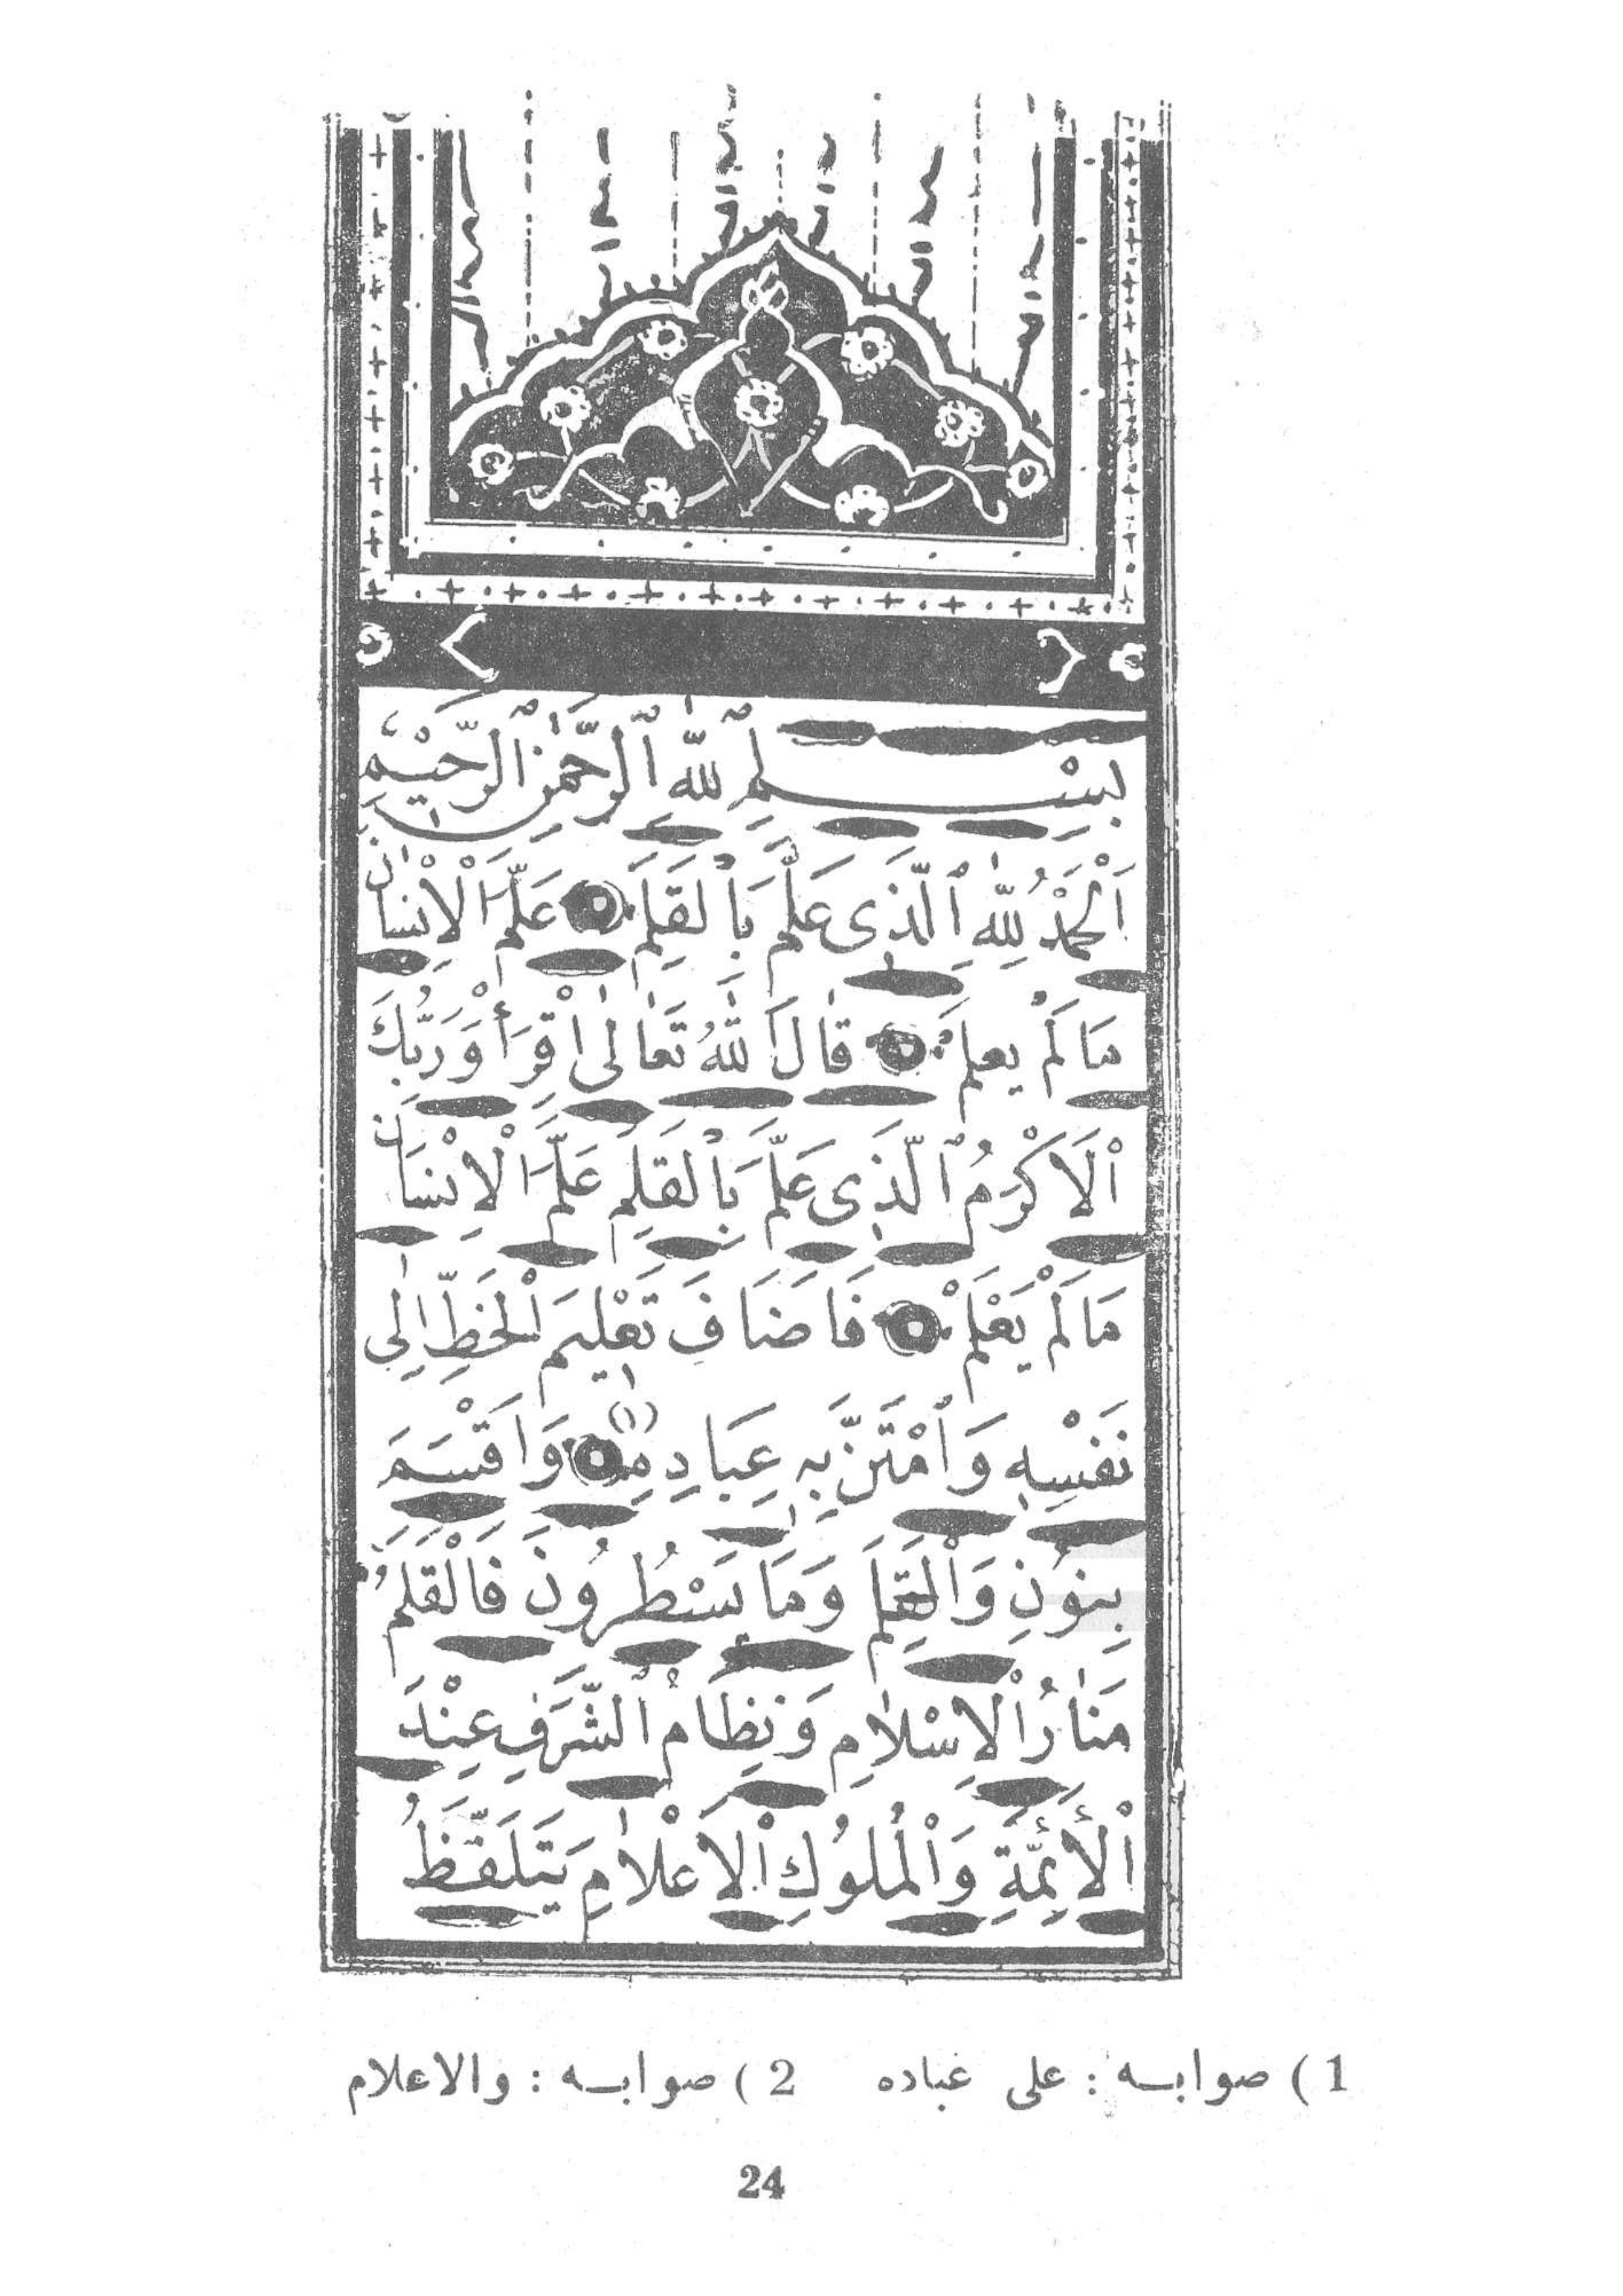 بِسْــــــمِ ٱللّٰهِ ٱلرَّحْمٰنِ ٱلرَّحِيْمِ
اَلْحَمْدُ لِلّٰهِ ٱلَّذِى عَلَّمَ بَالْقَلَمِ عَلَّمَ الْاِنْسٰانَ
مَا لَمْ يَعلَمْ قٰالَ اللّٰهُ تَعٰالٰى اقْرَأْ وَرَبُّكَ
ٱلَاكْرَمُ ٱلَّذِى عَلَّمَ بَالْقَلَمِ عَلَّمَ الْاِنْسَانَ
مَا لَمْ يَعْلَمْ فَاَضَافَ تَعْلِيمَ الْخَطِّ اِلٰى
نَفْسِهِ وَٱمْتَنَّ بِهِ عِبَادِهِ (١) وَاَقْسَمَ
بِنوُنِ وَالْقَلَمِ وَمَا يَسْطُرُونَ فَالْقَلَمُ
مَنٰارُ الْاِسْلٰامِ وَنِظَامُ ٱلشَّرَفِ عِنْدَ
ٱلْأَئِمَّةِ وَٱلْمُلُوكِ ٱلَاعْلٰامِ يَتَلَفَّظُ
1) صوابـه : على عباده 2) صوابـه : والاعلام
24